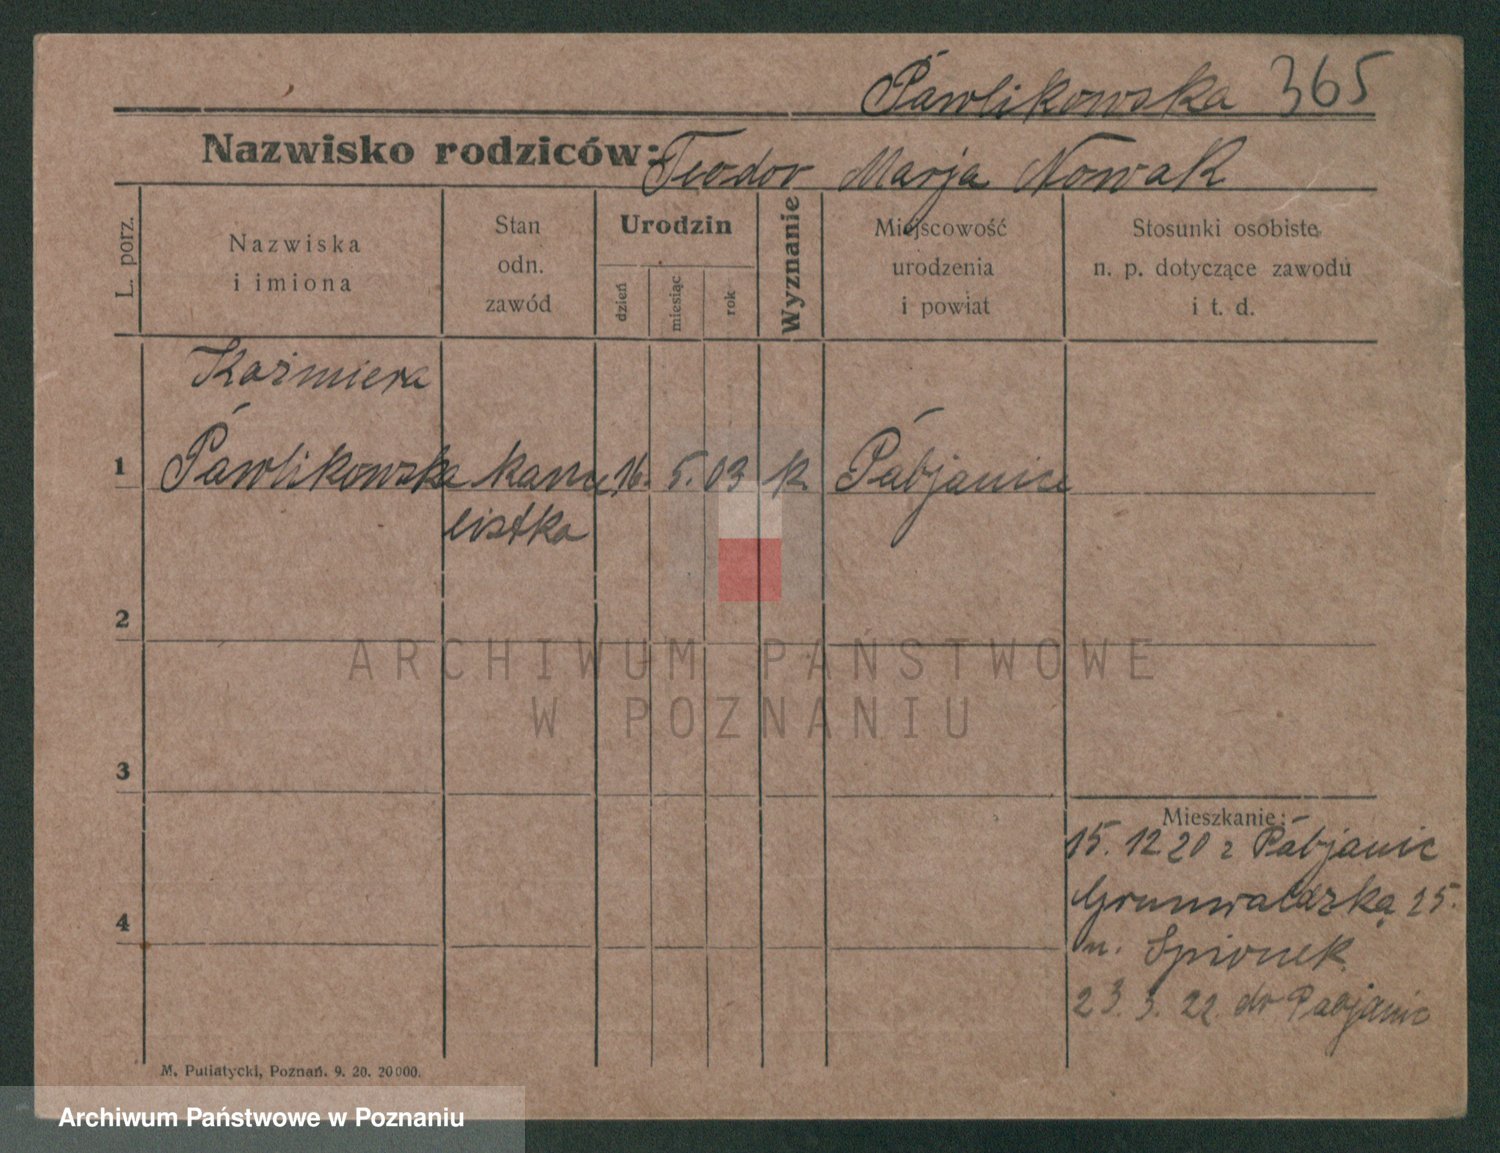 Pawlikowska 365
Nazwisko rodziców: Teodor Marja Nowak
L. porz.
Nazwiska
i imiona
Stan
odn.
zawód
Urodzin
dzień
miesiąc
rok
Wyznanie
Miejscowość
urodzenia
i powiat
Stosunki osobiste
n. p. dotyczące zawodu
i t. d.
Kazmiera
1 Pawlikowska kance 16. 5. 03 k. Pabjanice
listka
2
ARCHIWUM PAŃSTWOWE
W POZNANIU
3
Mieszkanie:
15. 12 20 z Pabjanic
4
Grunwaldzką 25.
u. Spionek
23. 3. 22. do Pabjanic
M. Putiatycki, Poznań. 9. 20. 20000.
Archiwum Państwowe w Poznaniu